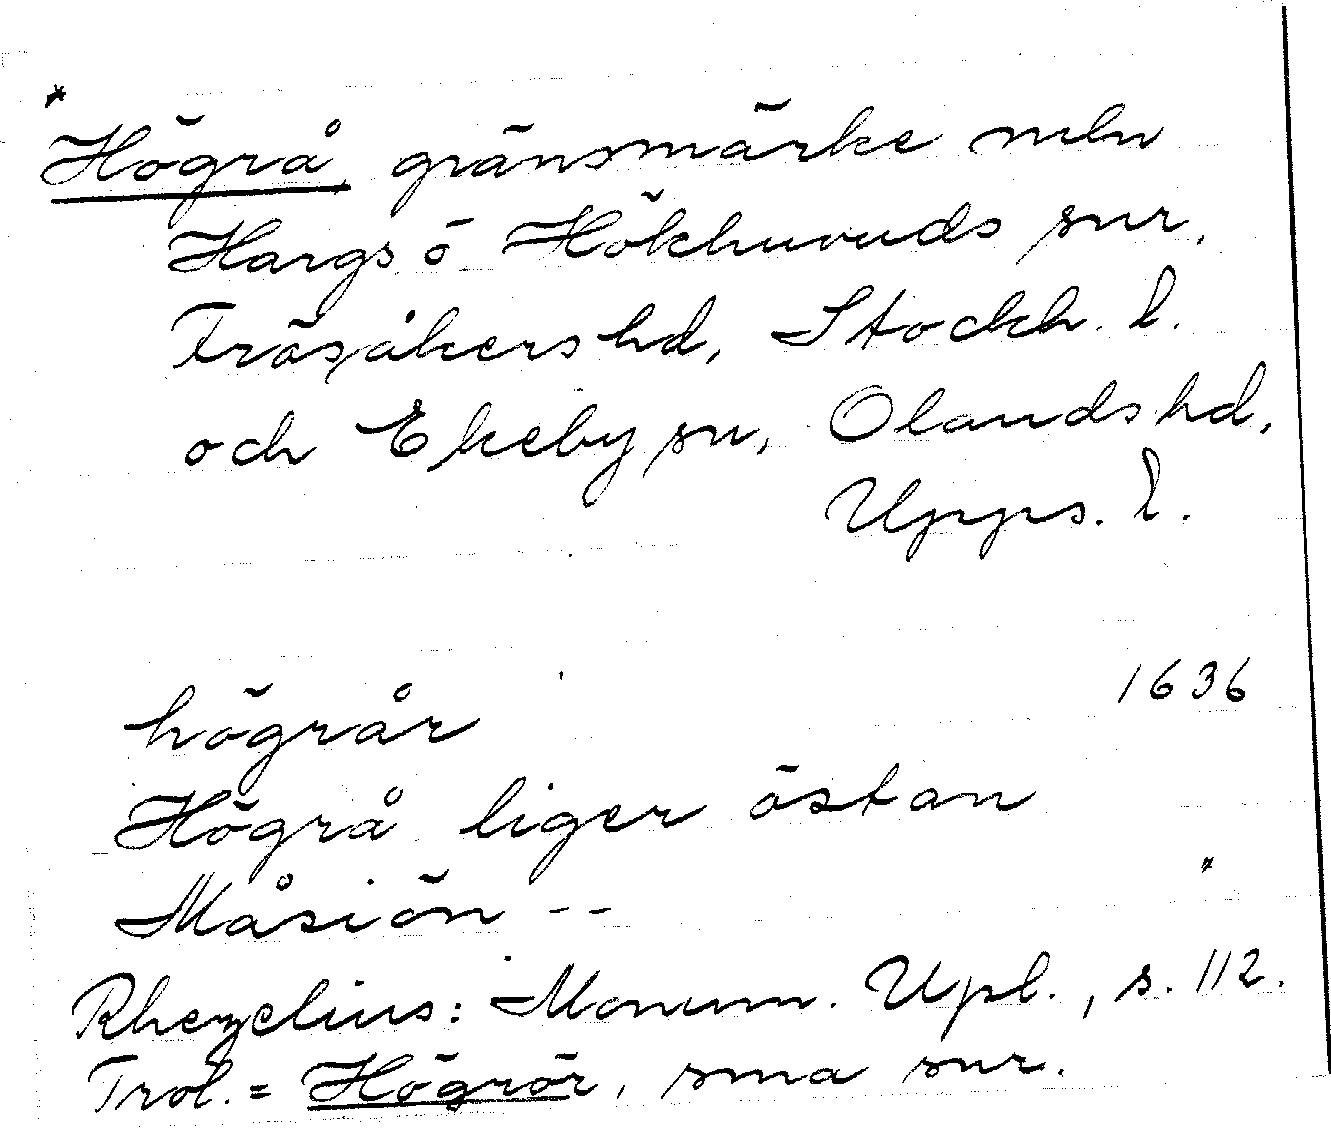 *
Högrå, gränsmärke mln
Hargs o Hökhuvuds snr,
Frösåkers hd, Stockh. l.
och Ekeby sn, Olands hd,
Upps. l.
högrår 1636
Högrå liger östan
Måsiön --
Rhezelius: Monum. Upl., s. 112.
Trol. = Högrör, sma snr.